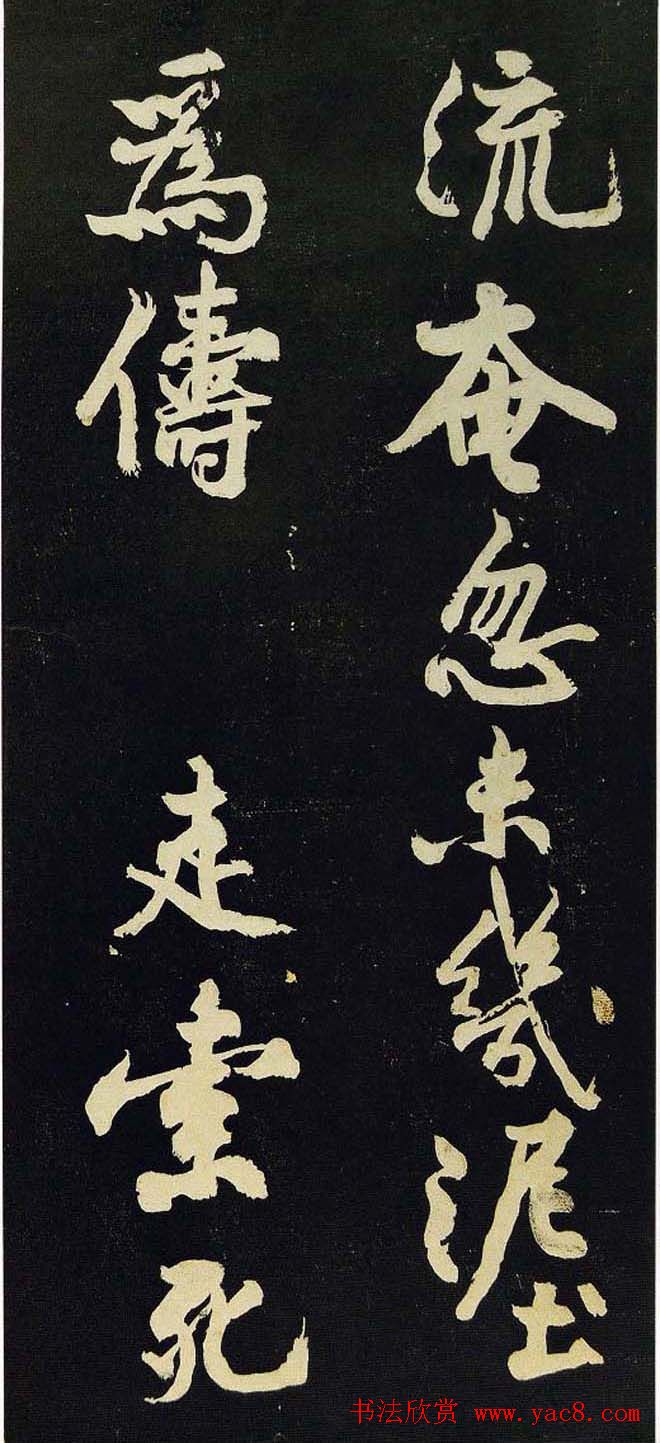 流奄忽未幾泥土
爲儔 走死
书法欣赏 www.yac8.com